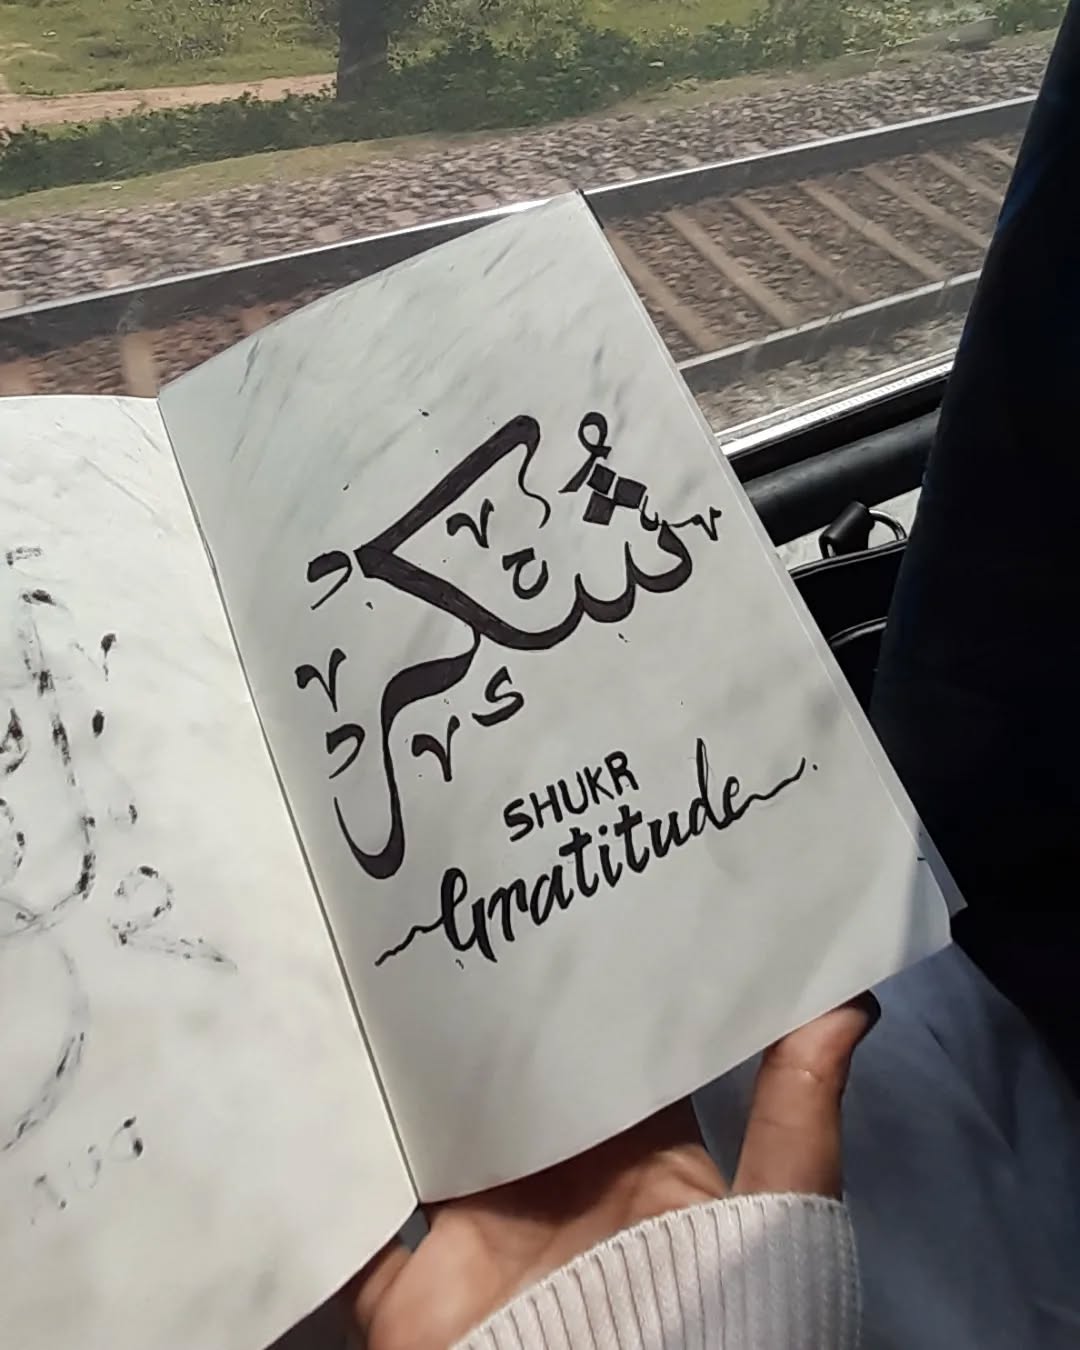 شُكر
SHUKR
Gratitude